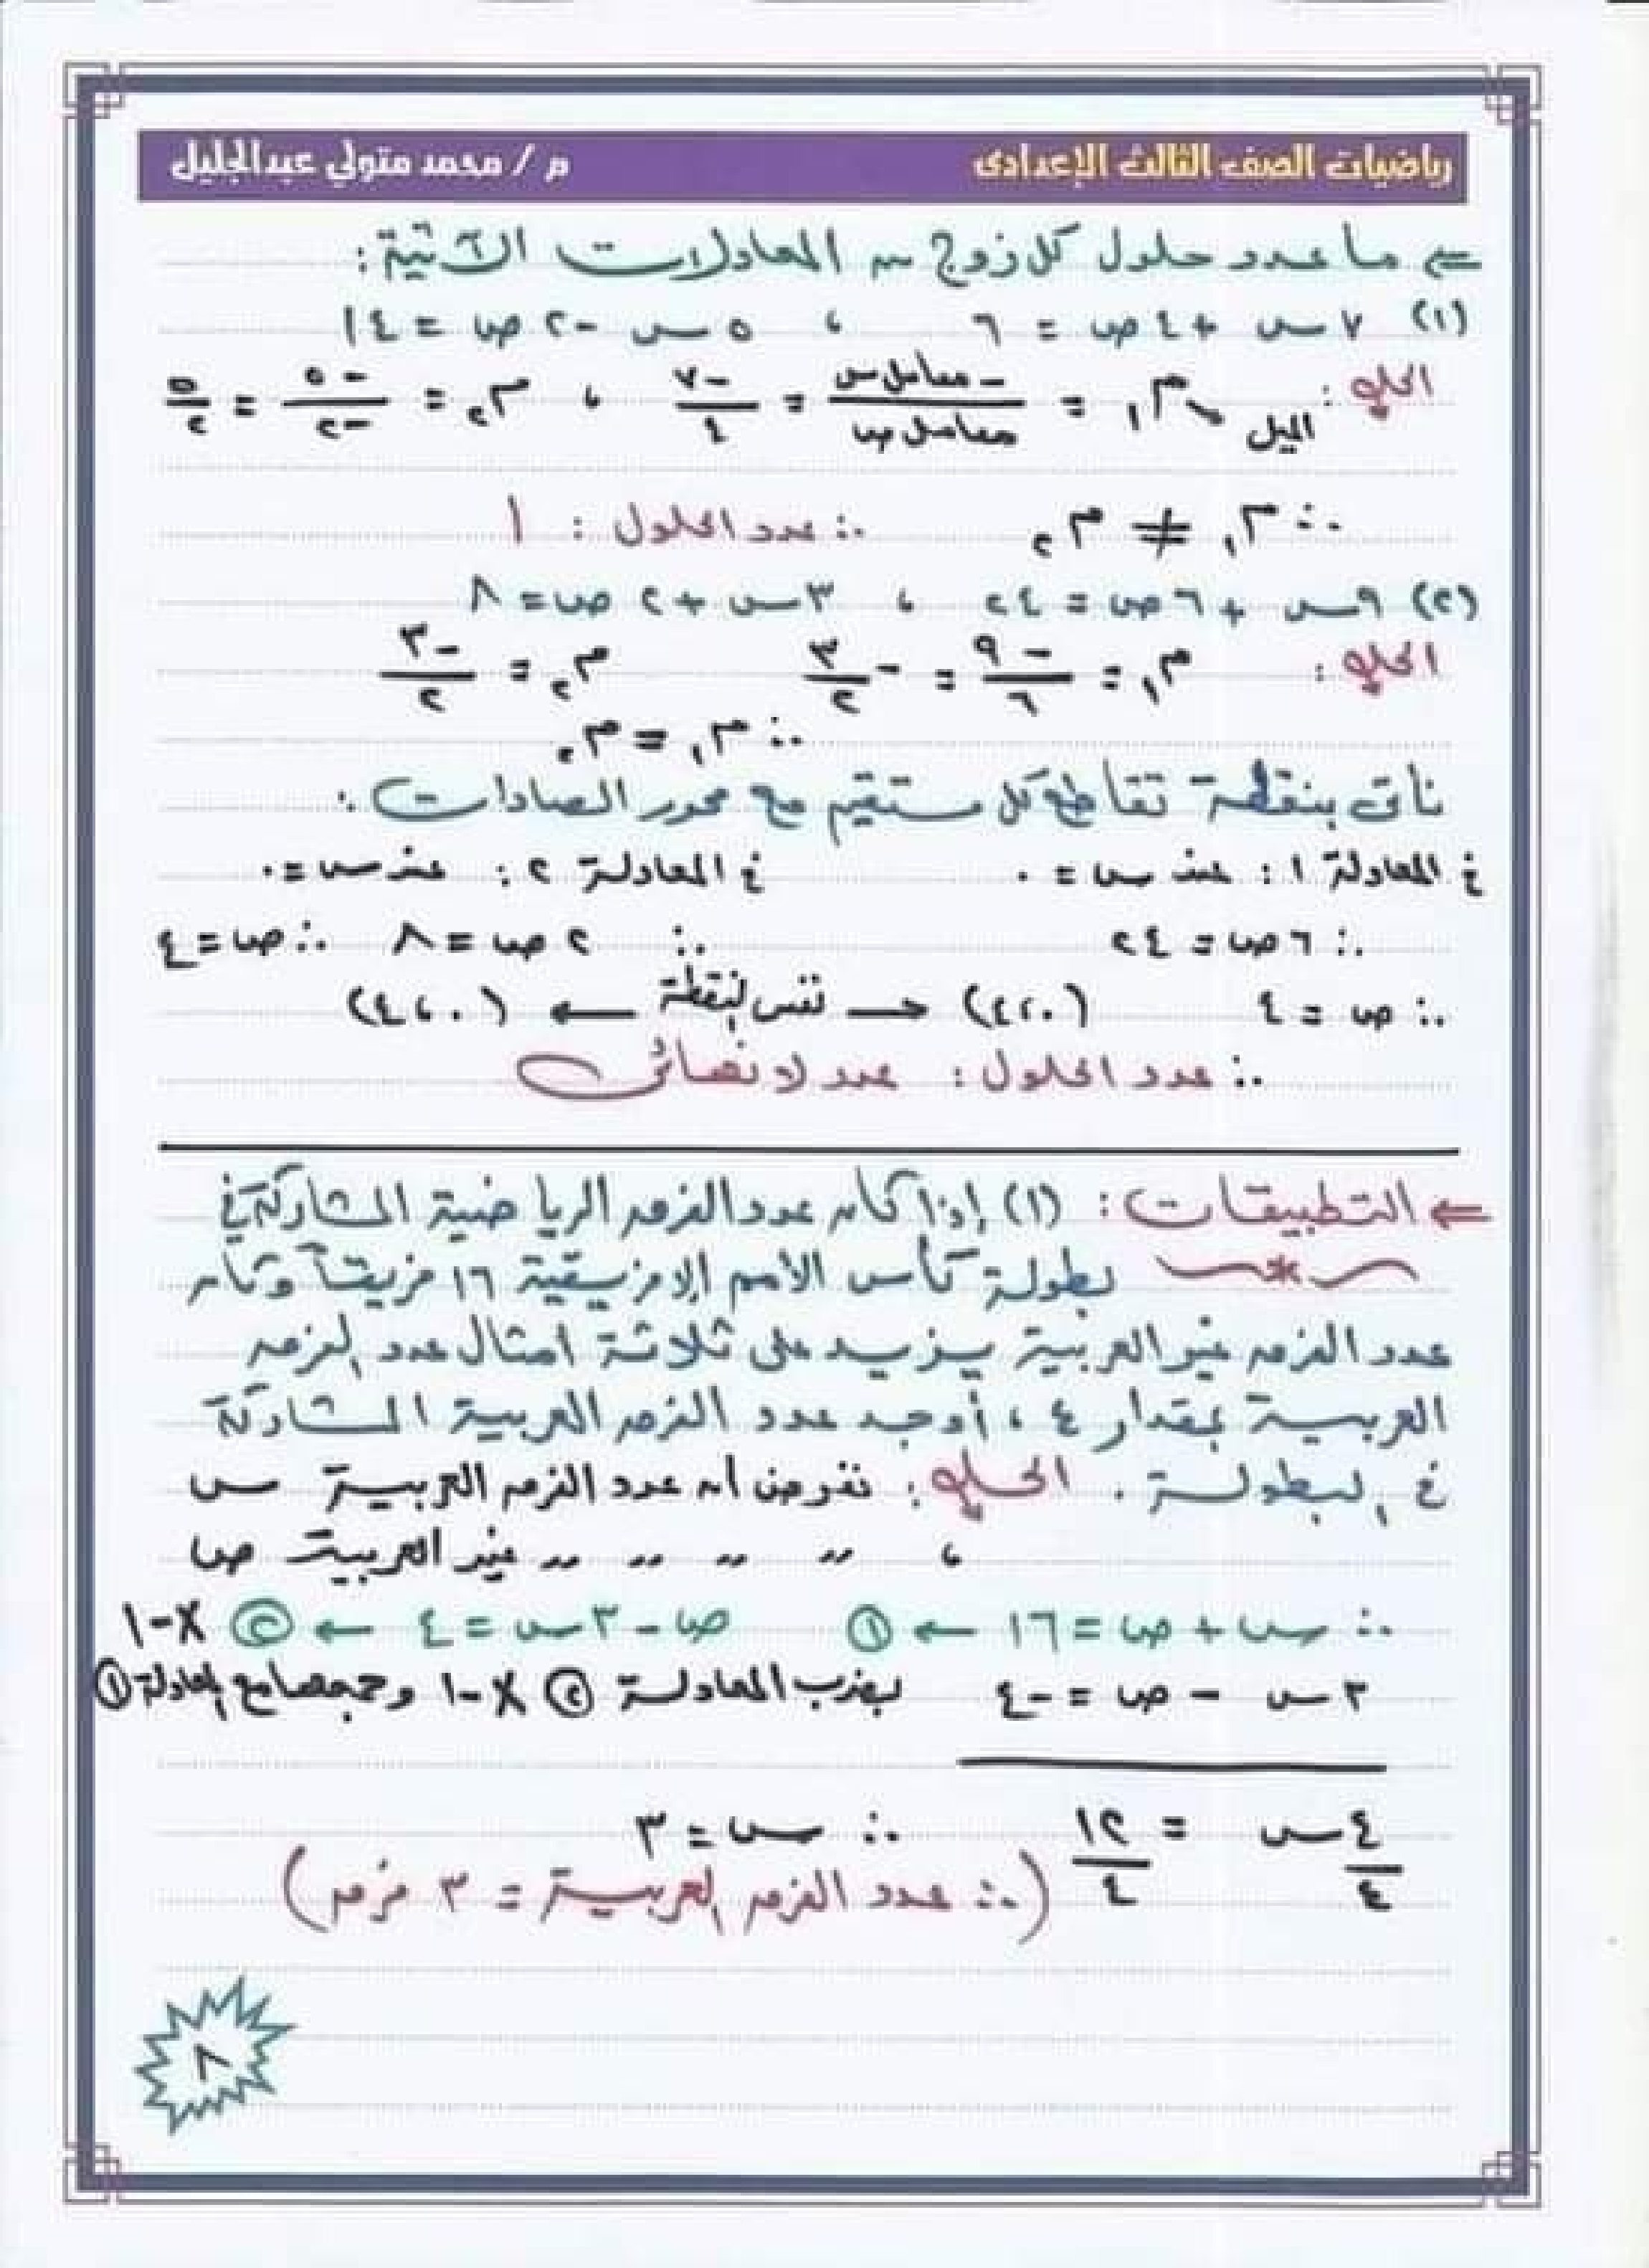 رياضيات الصف الثالث الإعدادى م / محمد متولي عبدالجليل
⇐ ما عدد حلول كل زوج من المعادلات الآتية :
(١) ٧س + ٤ص = ٦ ، ٥س - ٢ص = ١٤
الحل : الميل م١ = - معامل س / معامل ص = -٧ / ٤ ، م٢ = -٥ / -٢ = ٥ / ٢
∵ م١ ≠ م٢ ∴ عدد الحلول : ١
(٢) ٩س + ٦ص = ٢٤ ، ٣س + ٢ص = ٨
الحل : م١ = -٩ / ٦ = -٣ / ٢ م٢ = -٣ / ٢
∴ م١ = م٢
نأتى بنقطة تقاطع كل مستقيم مع محور الصادات :
فى المعادلة ١ : عند س = ٠ فى المعادلة ٢ : عند س = ٠
∴ ٦ص = ٢٤ ∴ ٢ص = ٨ ∴ ص = ٤
∴ ص = ٤ (٠،٤) ← نفس النقطة → (٠،٤)
∴ عدد الحلول : عدد لا نهائى
⇐ التطبيقات : (١) إذا كان عدد الفرق الرياضية المشاركة فى
بطولة كأس الأمم الإفريقية ١٦ فريقاً وكان
عدد الفرق غير العربية يزيد على ثلاثة أمثال عدد الفرق
العربية بمقدار ٤ ، أوجد عدد الفرق العربية المشاركة
فى البطولة . الحل : نفرض أن عدد الفرق العربية س
، ,, ,, ,, ,, غير العربية ص
∴ س + ص = ١٦ ← ① ص - ٣س = ٤ ← ② × -١
٣س - ص = -٤ بضرب المعادلة ② × -١ وجمعها مع المعادلة ①
٤س / ٤ = ١٢ / ٤ ∴ س = ٣
(∴ عدد الفرق العربية = ٣ فرق)
٨